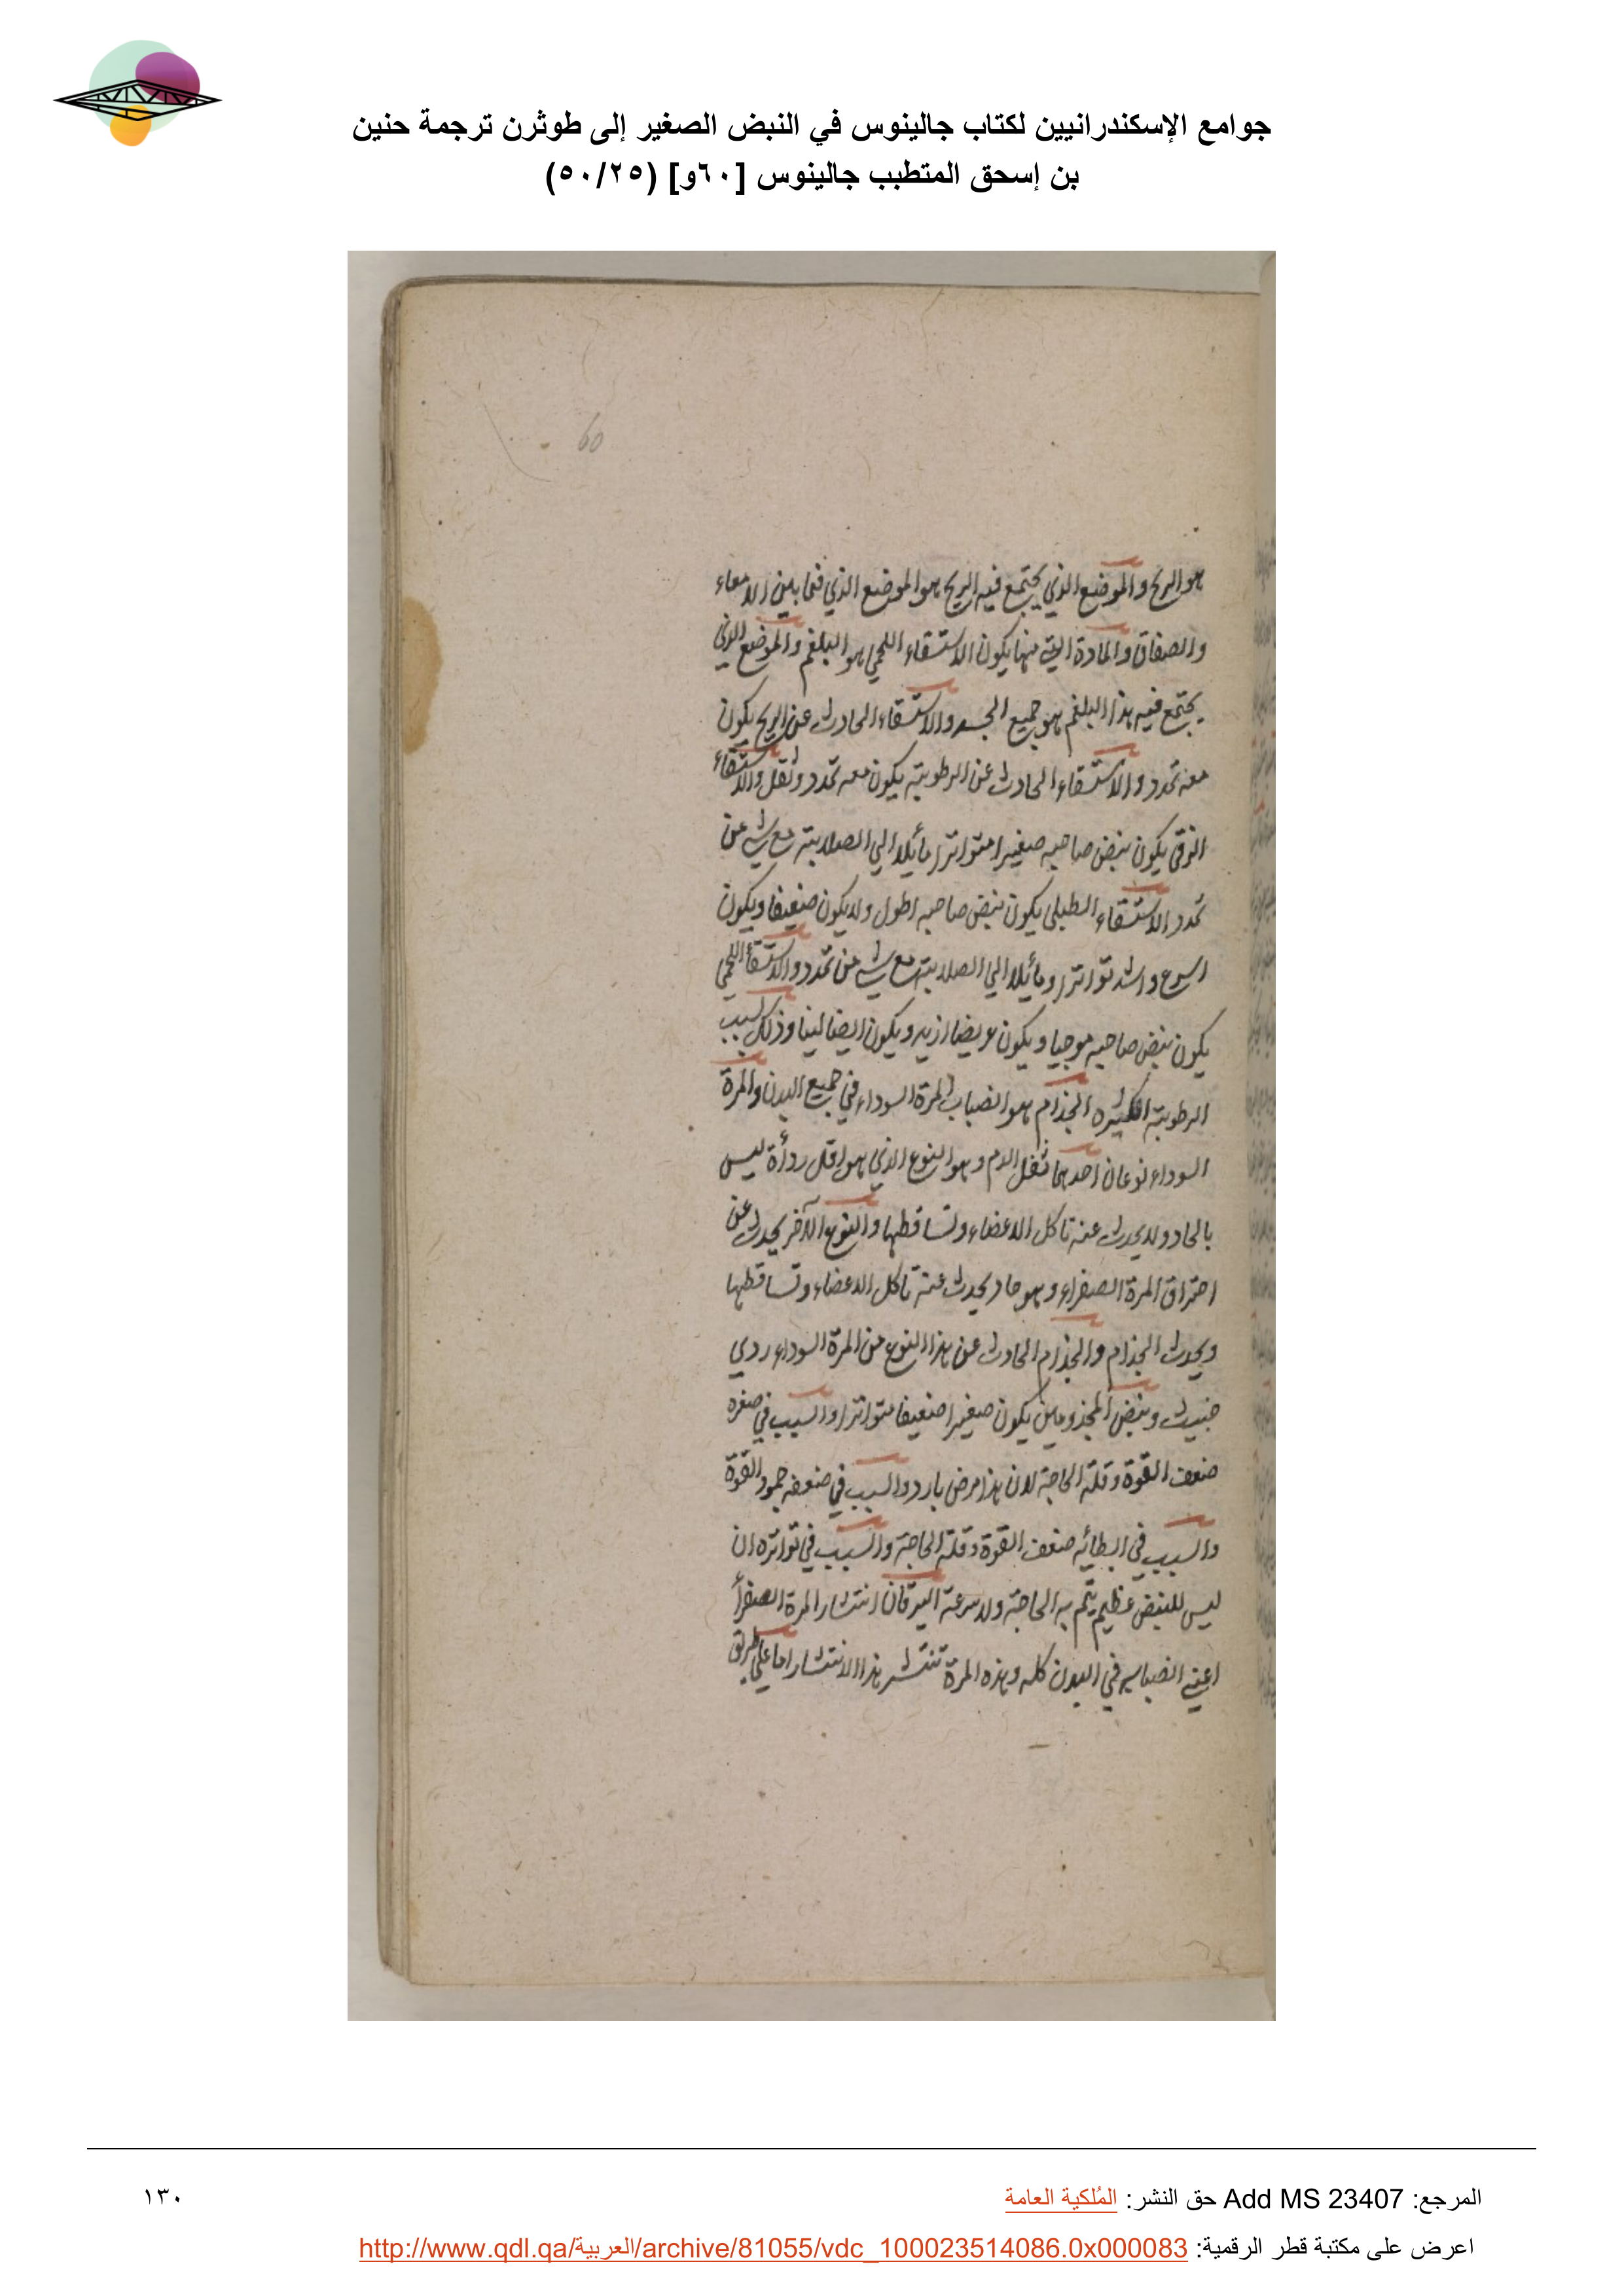 جوامع الإسكندرانيين لكتاب جالينوس في النبض الصغير إلى طوثرن ترجمة حنين
بن إسحق المتطبب جالينوس [٦٠و] (٥٠/٢٥)
60
هو الريح والموضع الذي يجتمع فيه الريح هو الموضع الذي فيما بين الامعاء
والصفاق والمادة التي منها يكون الاستسقاء اللحمي هو البلغم والموضع الذي
يجتمع فيه هذا البلغم هو جميع الجسد والاستسقاء الحادث عن الريح يكون
معه تمدد والاستسقاء الحادث عن الرطوبة يكون معه تمدد وثقل والاستسقاء
الزقي يكون نبض صاحبه صغيرا متواترا مائلا الي الصلابة مع شي من
تمدد الاستسقاء الطبلي يكون نبض صاحبه اطول ولا يكون ضعيفا ويكون
اسرع واشد تواترا ومائلا الي الصلابة مع شي من تمدد والاستسقاء اللحمي
يكون نبض صاحبه موجيا ويكون عريضا ازيد ويكون ايضا لينا وذلك بسبب
الرطوبة الكثيره الجذام هو انصباب المرة السوداء في جميع البدن والمرة
السوداء نوعان احدهما ثفل الدم وهو النوع الذي هو اقل ردأة ليس
بالحاد ولا يحدث عنه تاكل الاعضاء وتساقطها والنوع الآخر يحدث عن
احتراق المرة الصفراء وهو حاد يحدث عنه تاكل الاعضاء وتساقطها
ويحدث الجذام والجذام الحادث عن هذا النوع من المرة السوداء ردي
خبيث ونبض المجذومين يكون صغيرا ضعيفا متواترا والسبب في صغره
ضعف القوة وقلة الحاجة لان هذا مرض بارد والسبب في ضعفه جمود القوة
والسبب في ابطائه ضعف القوة وقلة الحاجة والسبب في تواتره ان
ليس للنبض عظيم يتم به الحاجة ولا سرعة اليرقان انتشار المرة الصفرأ
اعني انصبابه في البدن كله وهذه المرة تنتشر هذا الانتشار اما علي طريق
المرجع: Add MS 23407 حق النشر: المُلكية العامة
١٣٠
اعرض على مكتبة قطر الرقمية: http://www.qdl.qa/العربية/archive/81055/vdc_100023514086.0x000083